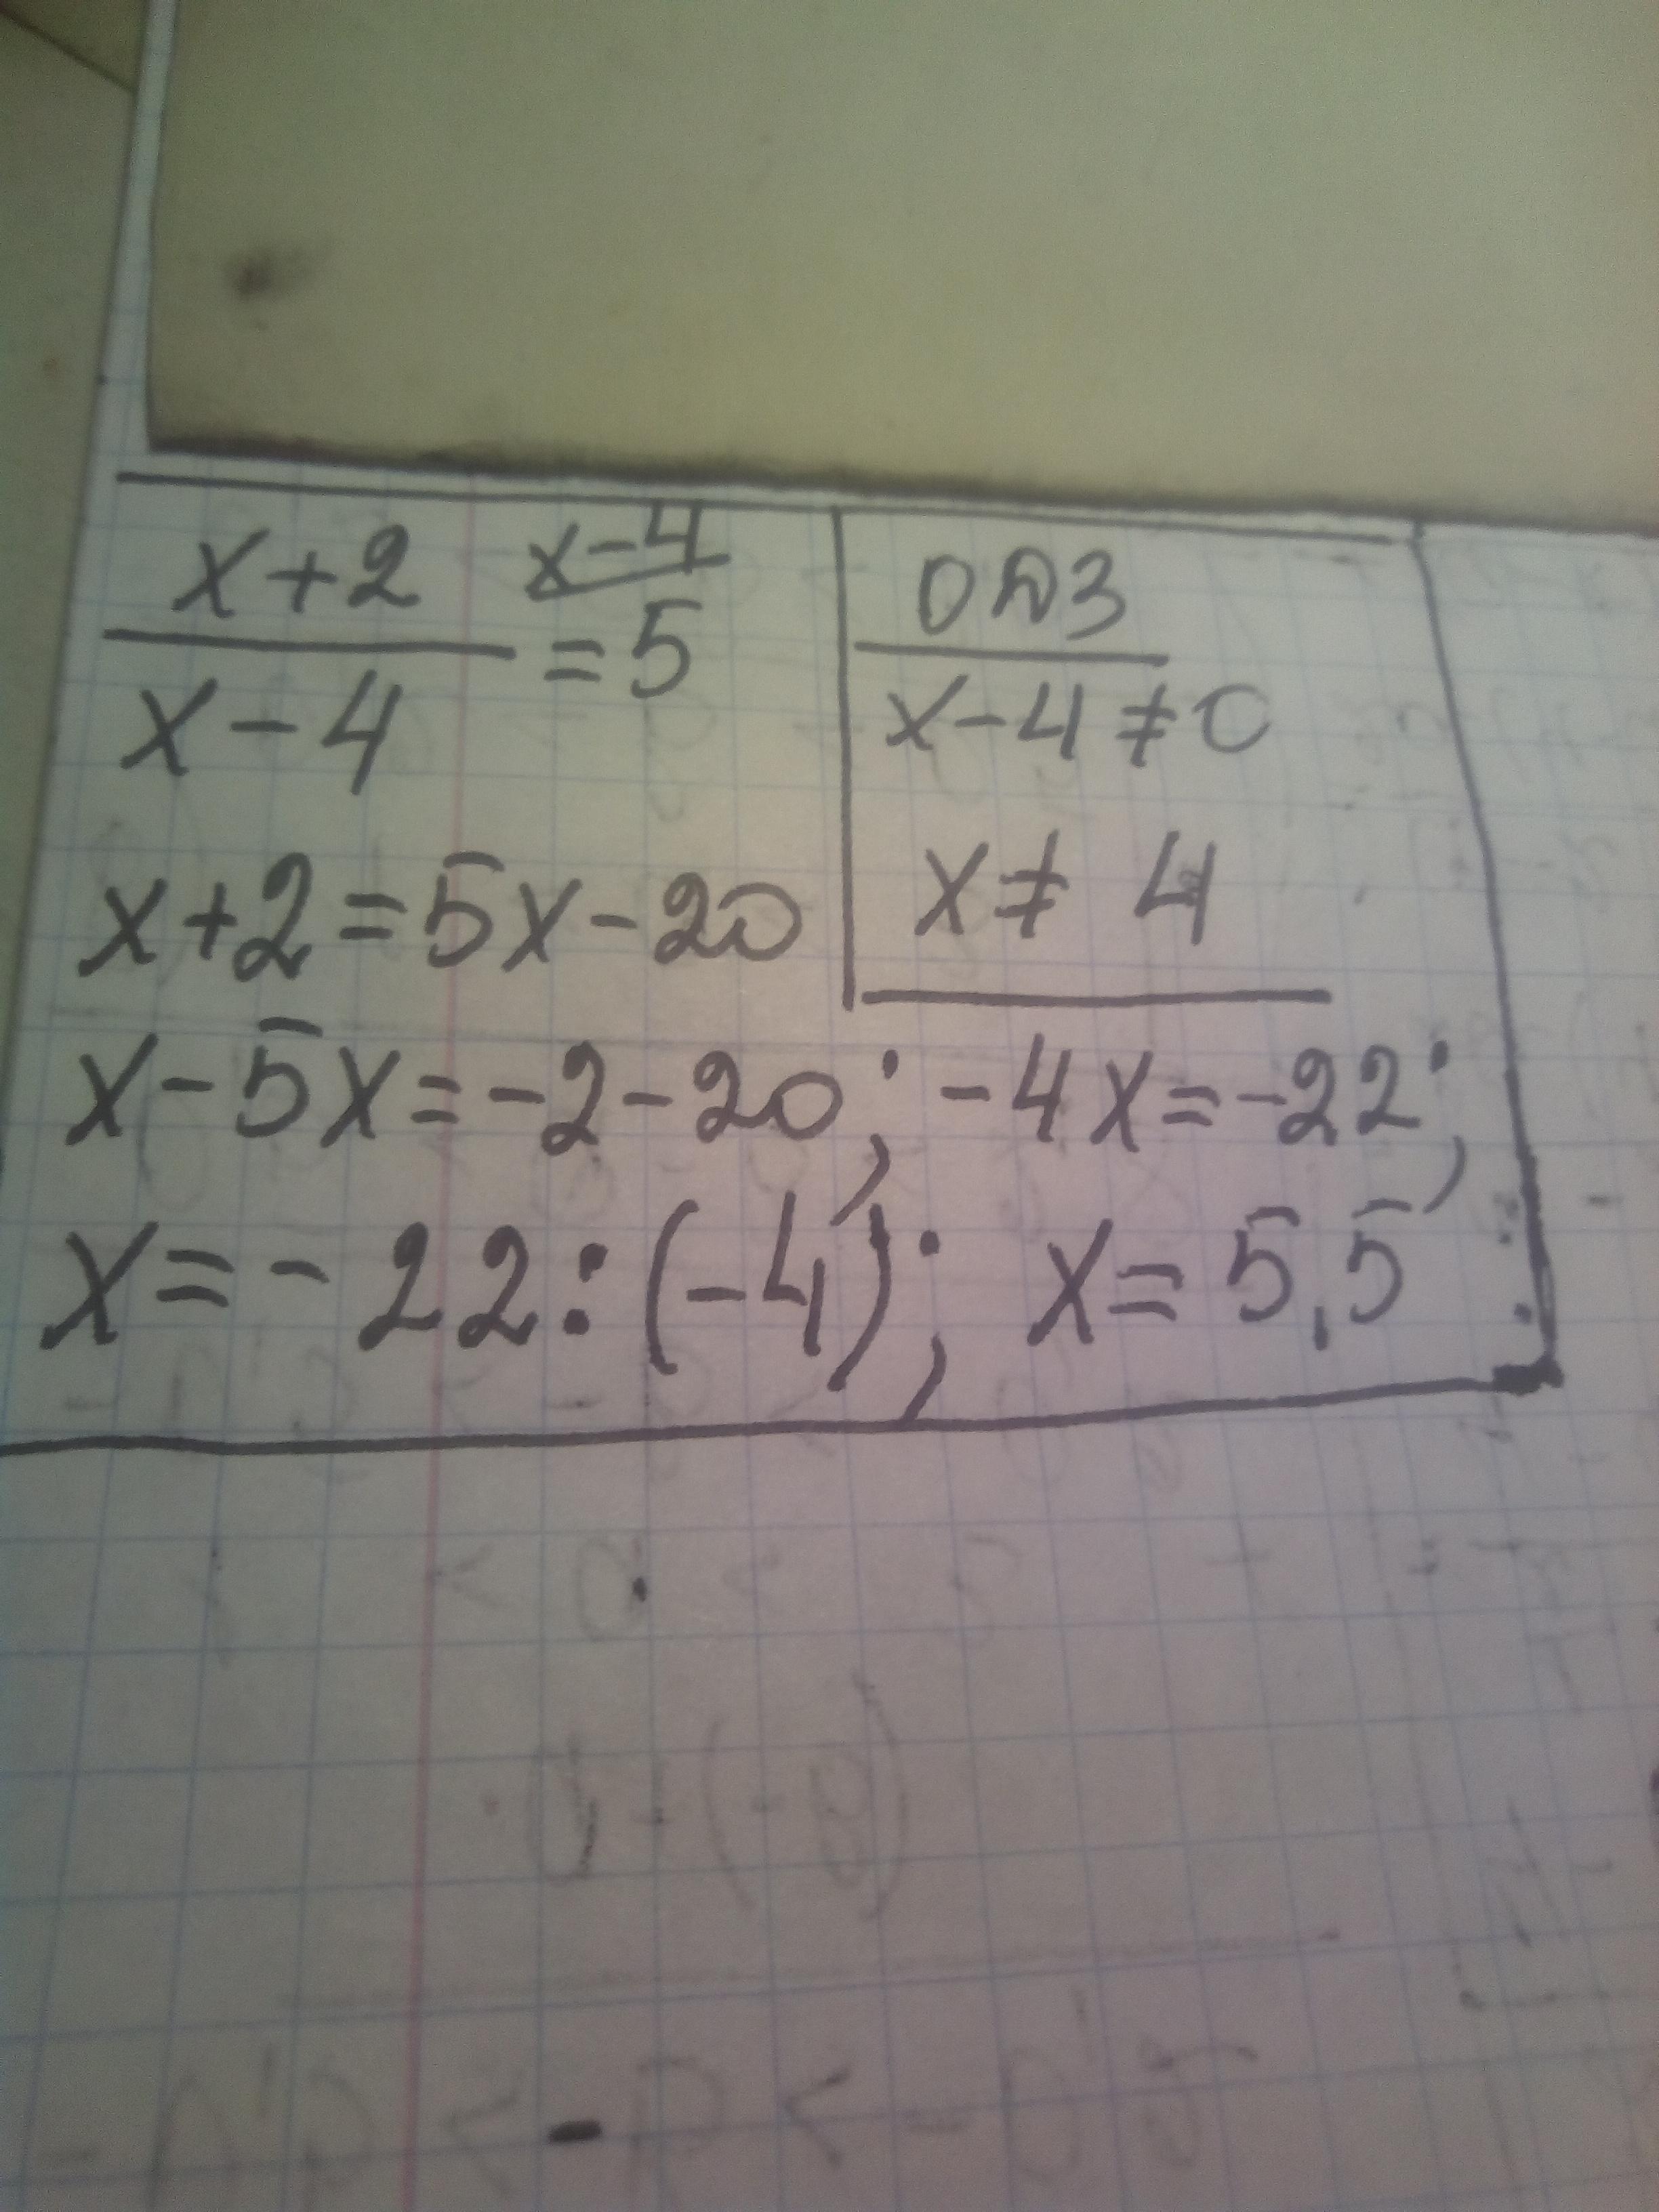 x+2 x-4
── =5
x-4
ОДЗ
x-4≠0
x≠ 4
x+2=5x-20
x-5x=-2-20; -4x=-22;
x=-22:(-4); x=5,5